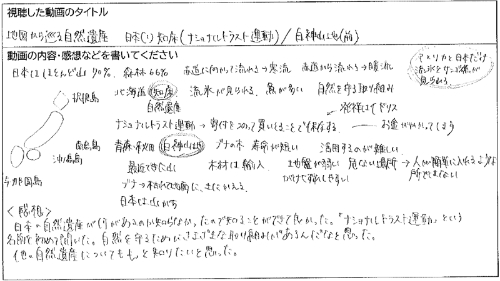 視聴した動画のタイトル
地図から巡る自然遺産 日本(1) 知床(ナショナルトラスト運動)/白神山地(前)
動画の内容・感想などを書いてください
日本はほとんど山 70% 森林66% 赤道に向かって流れる→寒流 赤道から流れる→暖流
アメリカと日本だけ
流氷とサンゴ礁が
見られる
択捉島 北海道 知床 流氷が見られる 魚が多い 自然を守る取り組み
自然遺産 発祥はイギリス
ナショナルトラスト運動→寄付を使って買いとることで保存する
南鳥島 青森・秋田 白神山地 ブナの木 寿命が短い 活用するのが難しい
沖ノ鳥島 最近できた山 木材は輸入 地盤が弱い 危ない場所→人が簡単に入れるような
与那国島 がけで崩れやすい 所ではない
日本は山がち
<感想>
日本の自然遺産が何があるのか知らなかったので知ることができて良かった。「ナショナルトラスト運動」という
名前を初めて聞いた。自然を守るためにさまざまな取り組みがあるんだなと思った。
他の自然遺産についてもっと知りたいと思った。